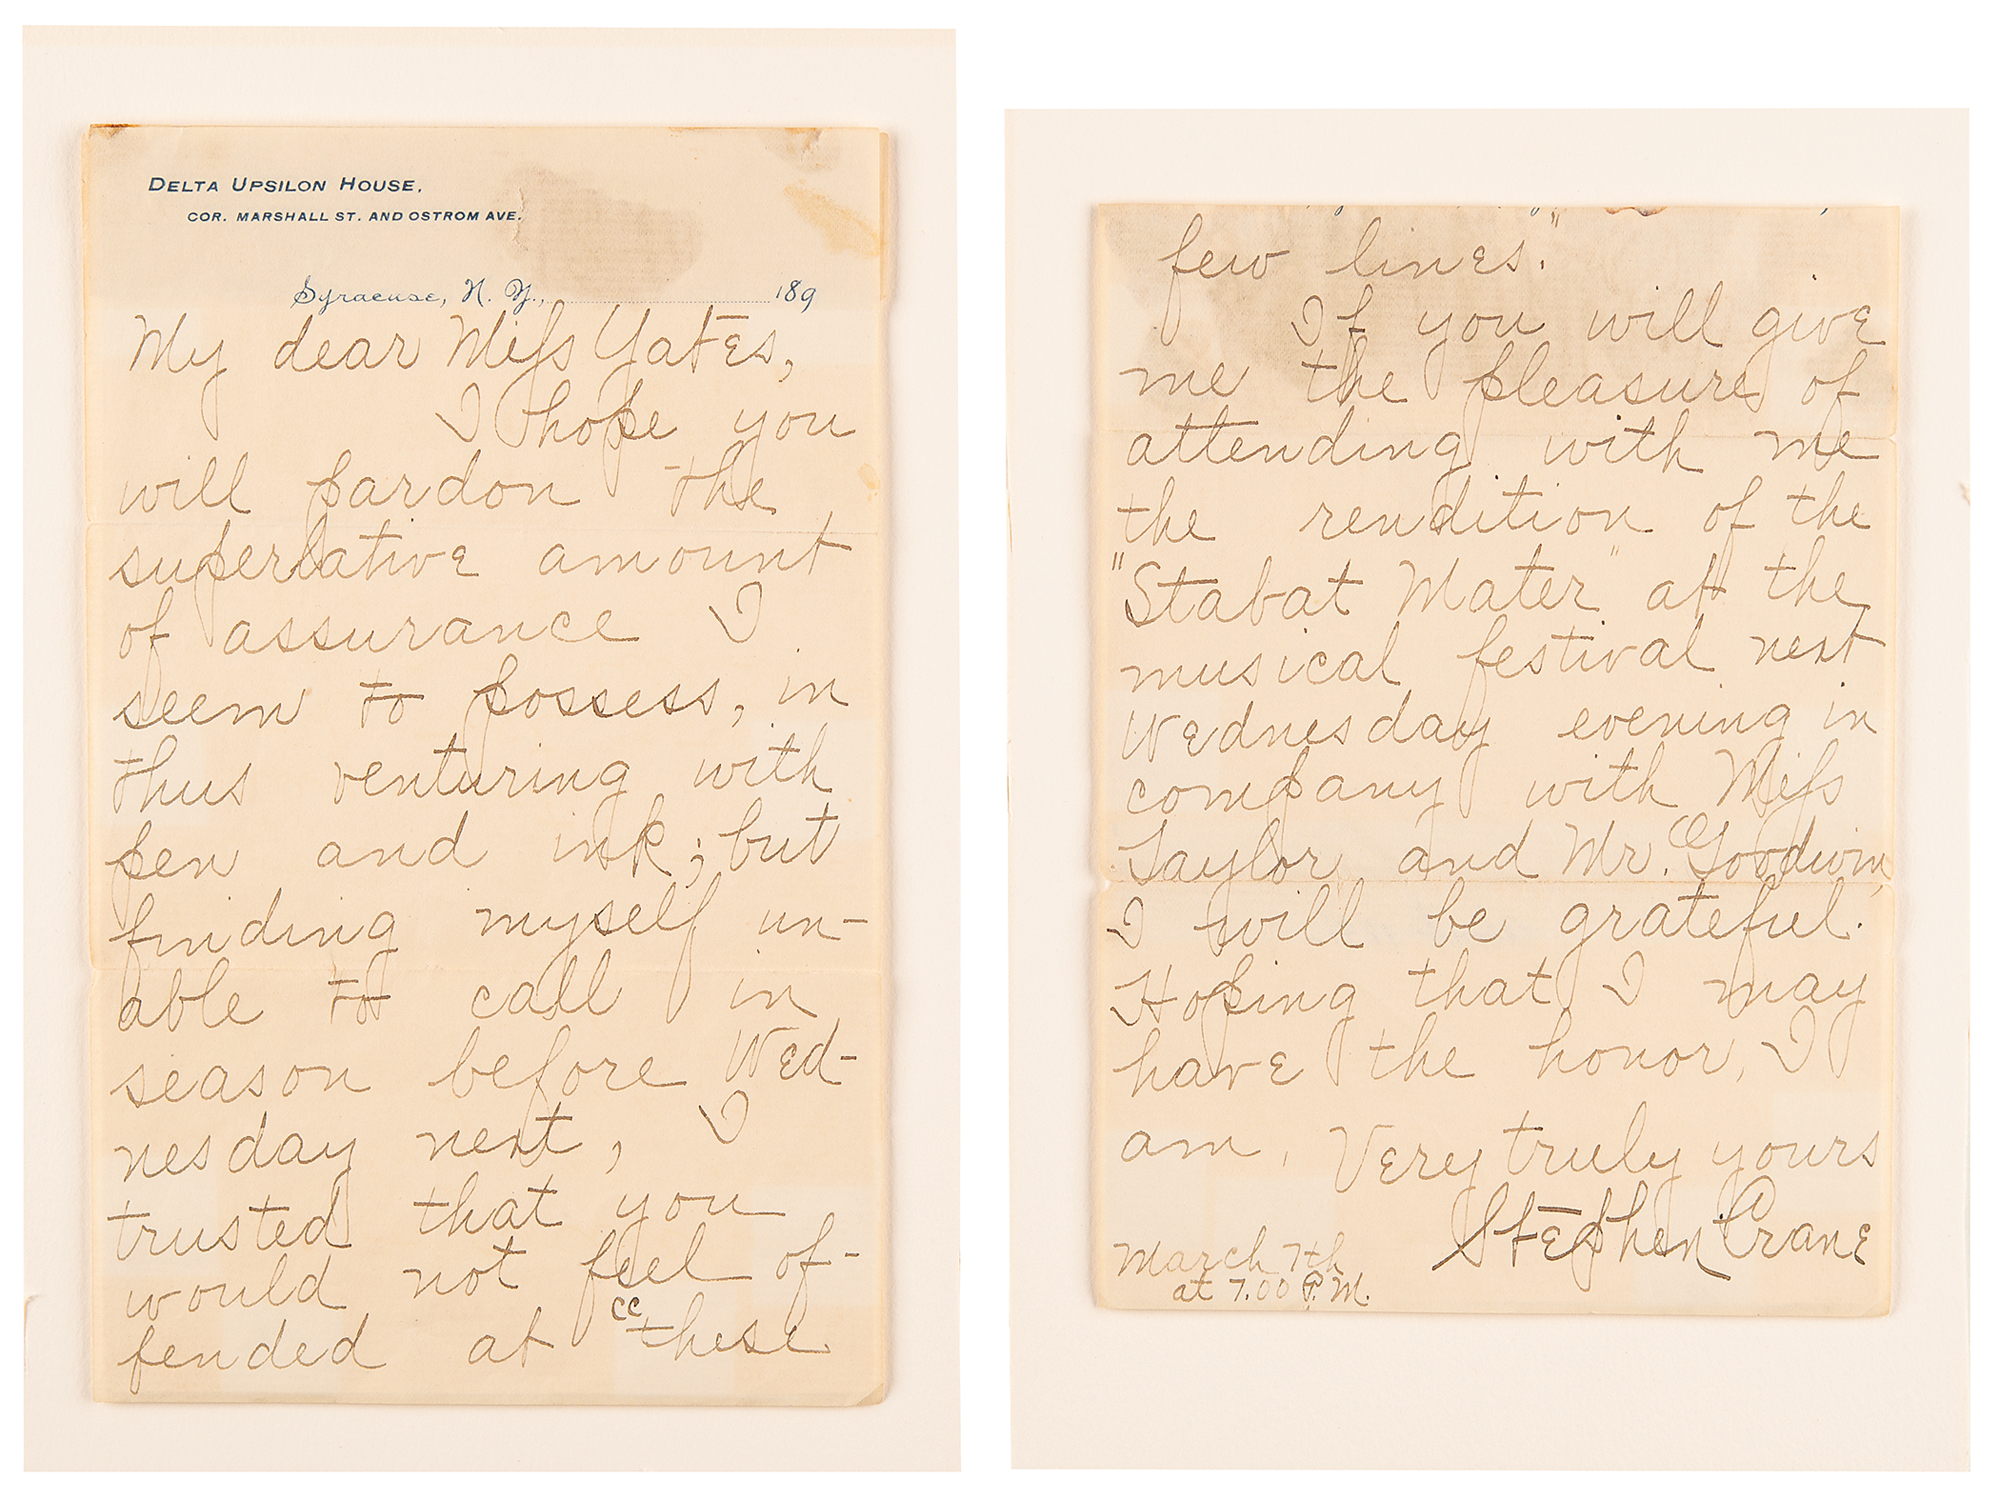 DELTA UPSILON HOUSE,
COR. MARSHALL ST. AND OSTROM AVE.
Syracuse, N. Y., 189
My dear Miss Yates,
I hope you
will pardon the
superlative amount
of assurance I
seem to possess, in
thus venturing with
pen and ink; but
finding myself un-
able to call in
season before Wed-
nesday next, I
trusted that you
would not feel of-
fended at "these
few lines."
If you will give
me the pleasure of
attending with me
the rendition of the
"Stabat Mater" at the
musical festival next
Wednesday evening in
company with Miss
Taylor and Mr. Goodwin,
I will be grateful.
Hoping that I may
have the honor, I
am, Very truly yours
Stephen Crane
March 7th
at 7.00 P.M.